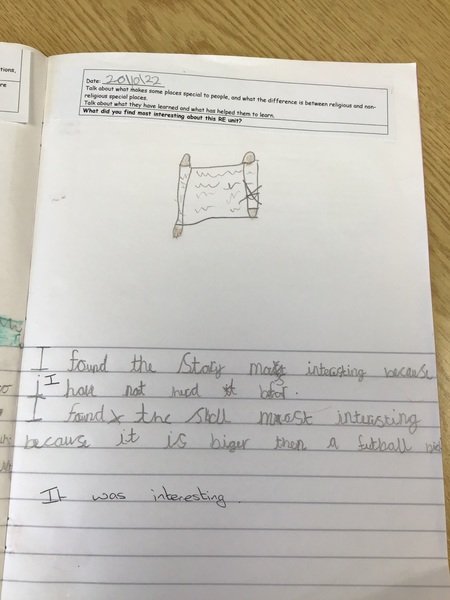 tions,
re
Date: 20/10/22
Talk about what makes some places special to people, and what the difference is between religious and non-
religious special places.
Talk about what they have learned and what has helped them to learn.
What did you find most interesting about this RE unit?
I found the story most interesting because
I have not herd it
I found the skoll most intersting
because it is biger then a futball
It was interesting.